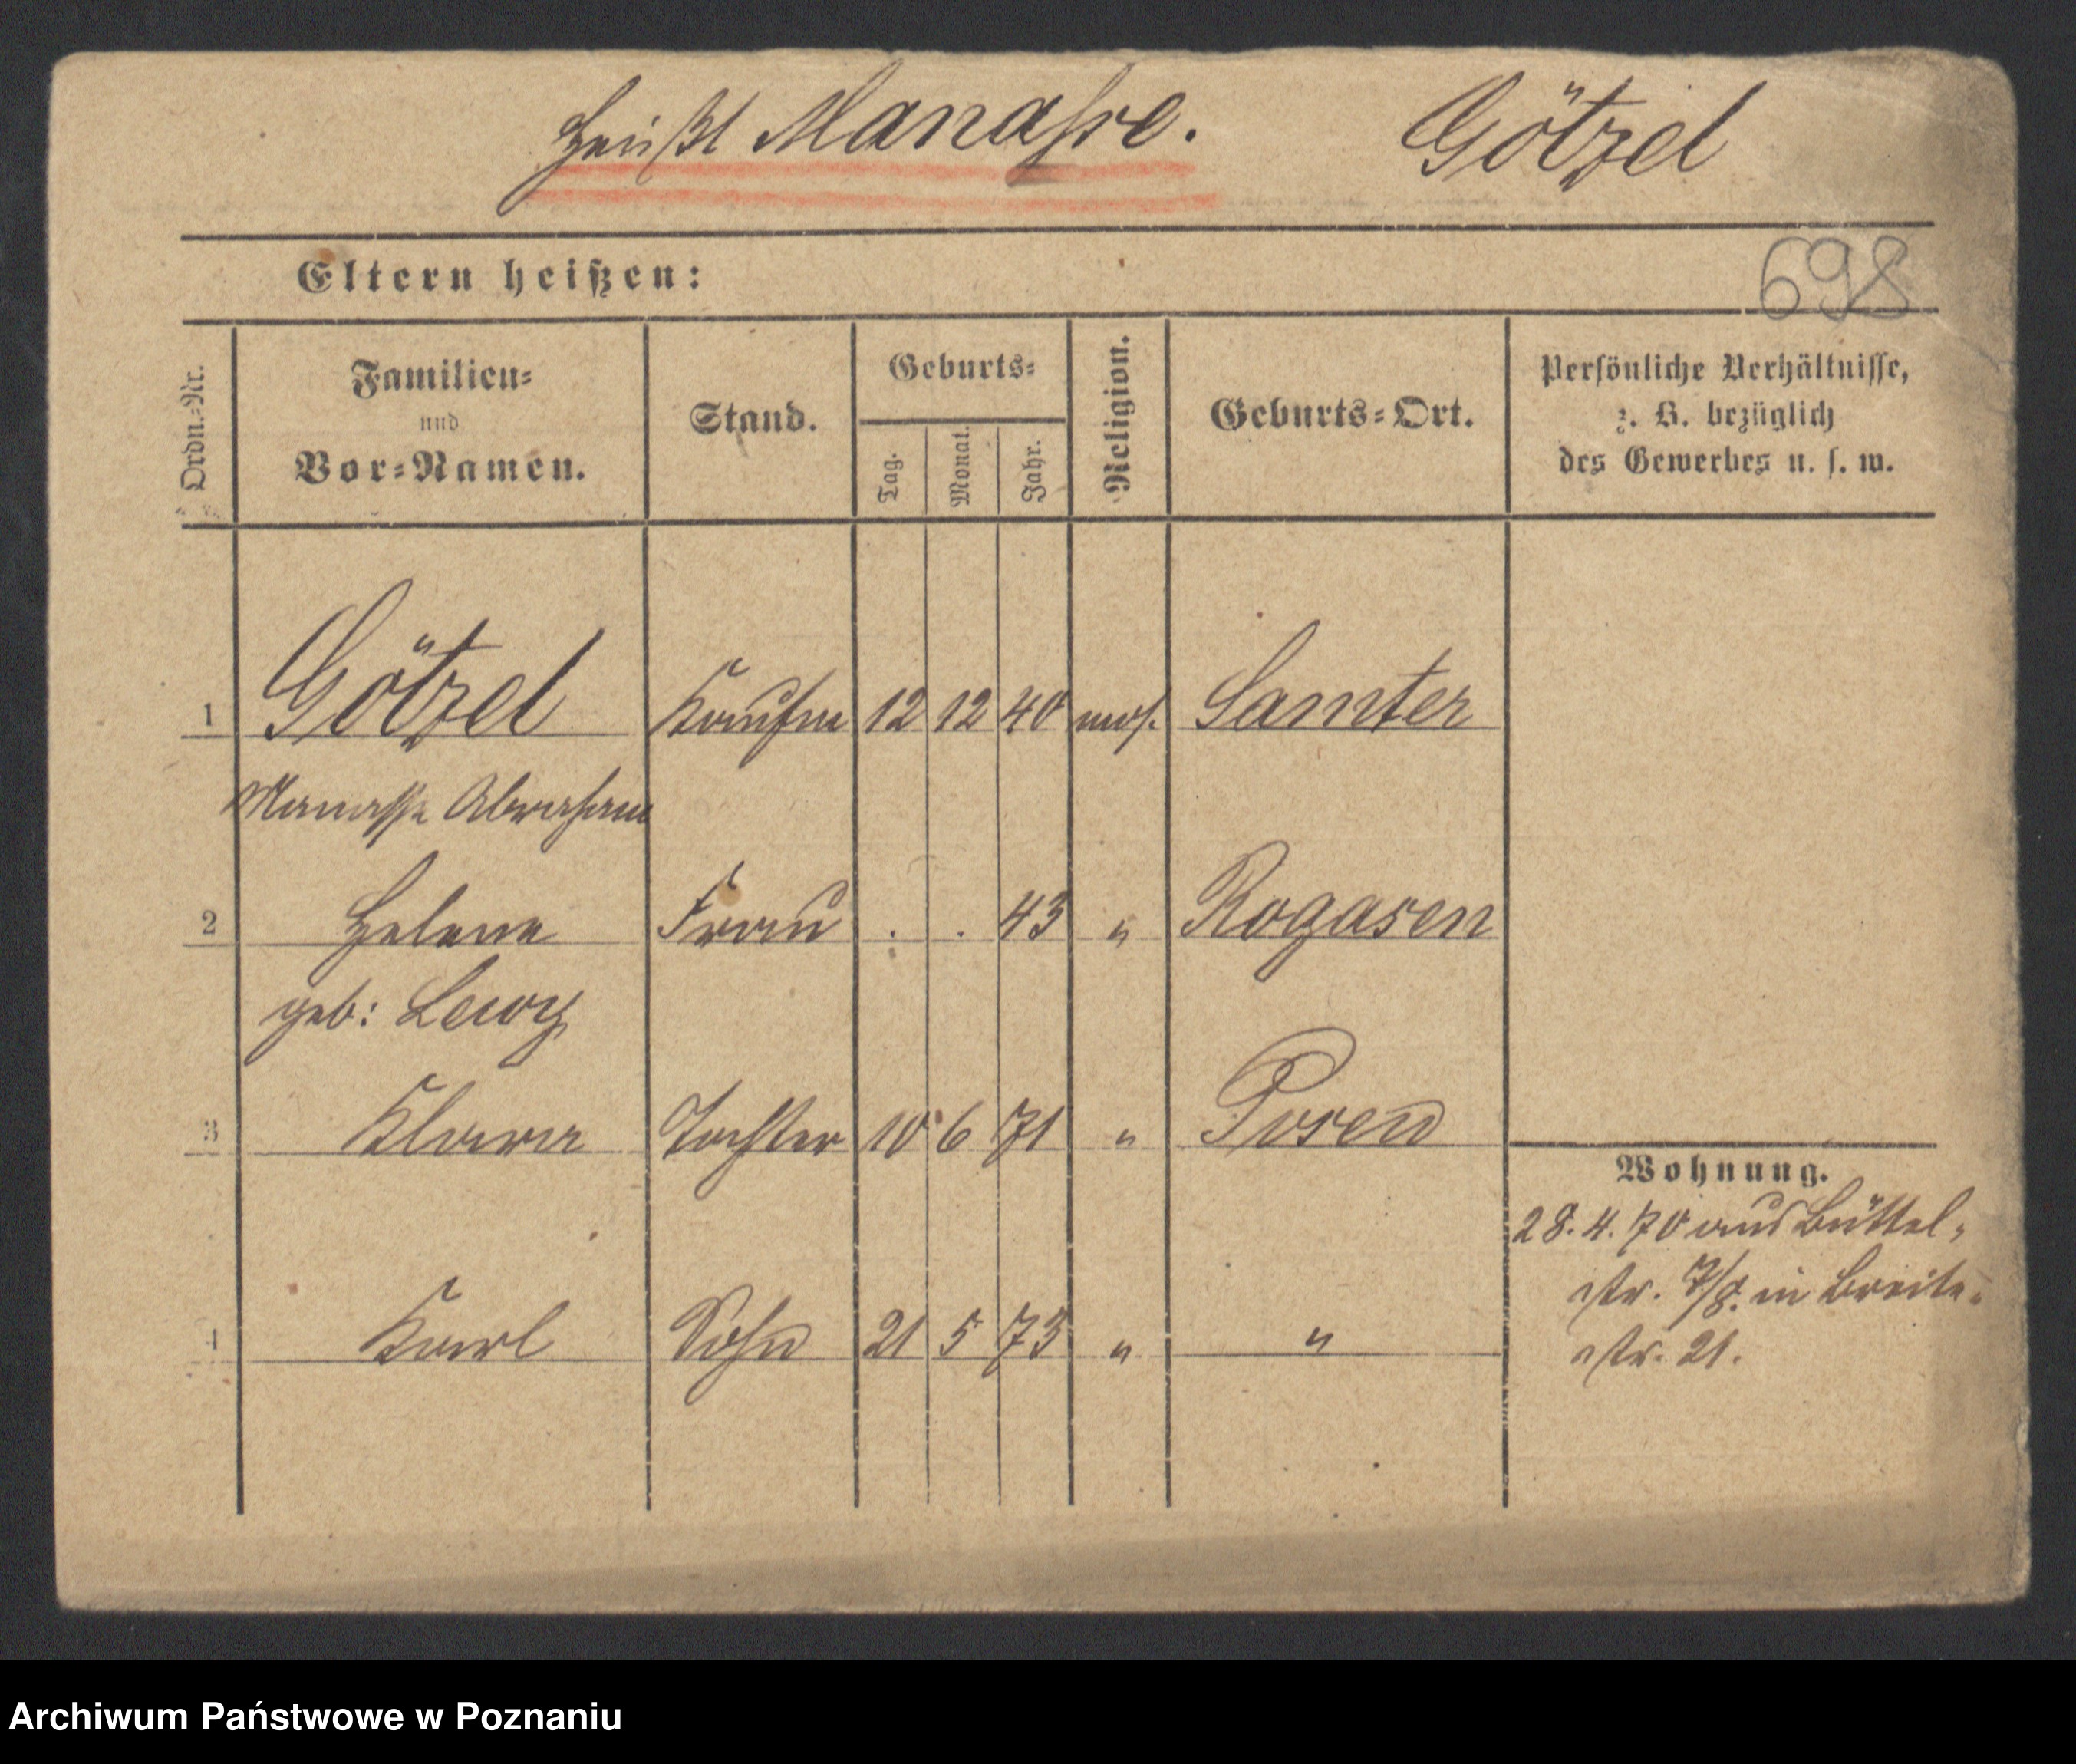 heißt Manasse. Götzel
698
Eltern heißen:
Ordn.=Nr. Familien= und Vor=Namen. Stand. Geburts= Tag. Monat. Jahr. Religion. Geburts=Ort. Persönliche Verhältnisse, z. B. bezüglich des Gewerbes u. s. w.
1 Götzel Kaufm 12 12 40 mos. Samter
Manasse Abraham
2 Helene Frau . . 43 " Rogasen
geb: Lewy
3 Klara Tochter 10 6 71 " Posen
4 Karl Sohn 21 5 73 " "
Wohnung.
28. 4. 70 aus Büttel=
str. 7/8. in Breite=
str. 21.
Archiwum Państwowe w Poznaniu